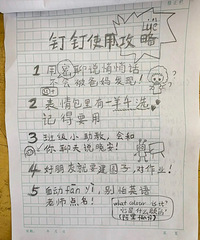 钉钉使用攻略
lüè
1 用密聊说悄悄话
怎么被爸妈发现!
2 表情包里有一羊牛泥
记得要用
3 班级小助教,会和
你聊天说晚安!
4 好朋友就要建圈子,对作业!
5 自动fān yì,别怕英语
老师点名!
what colour is it?
它是什么颜色?